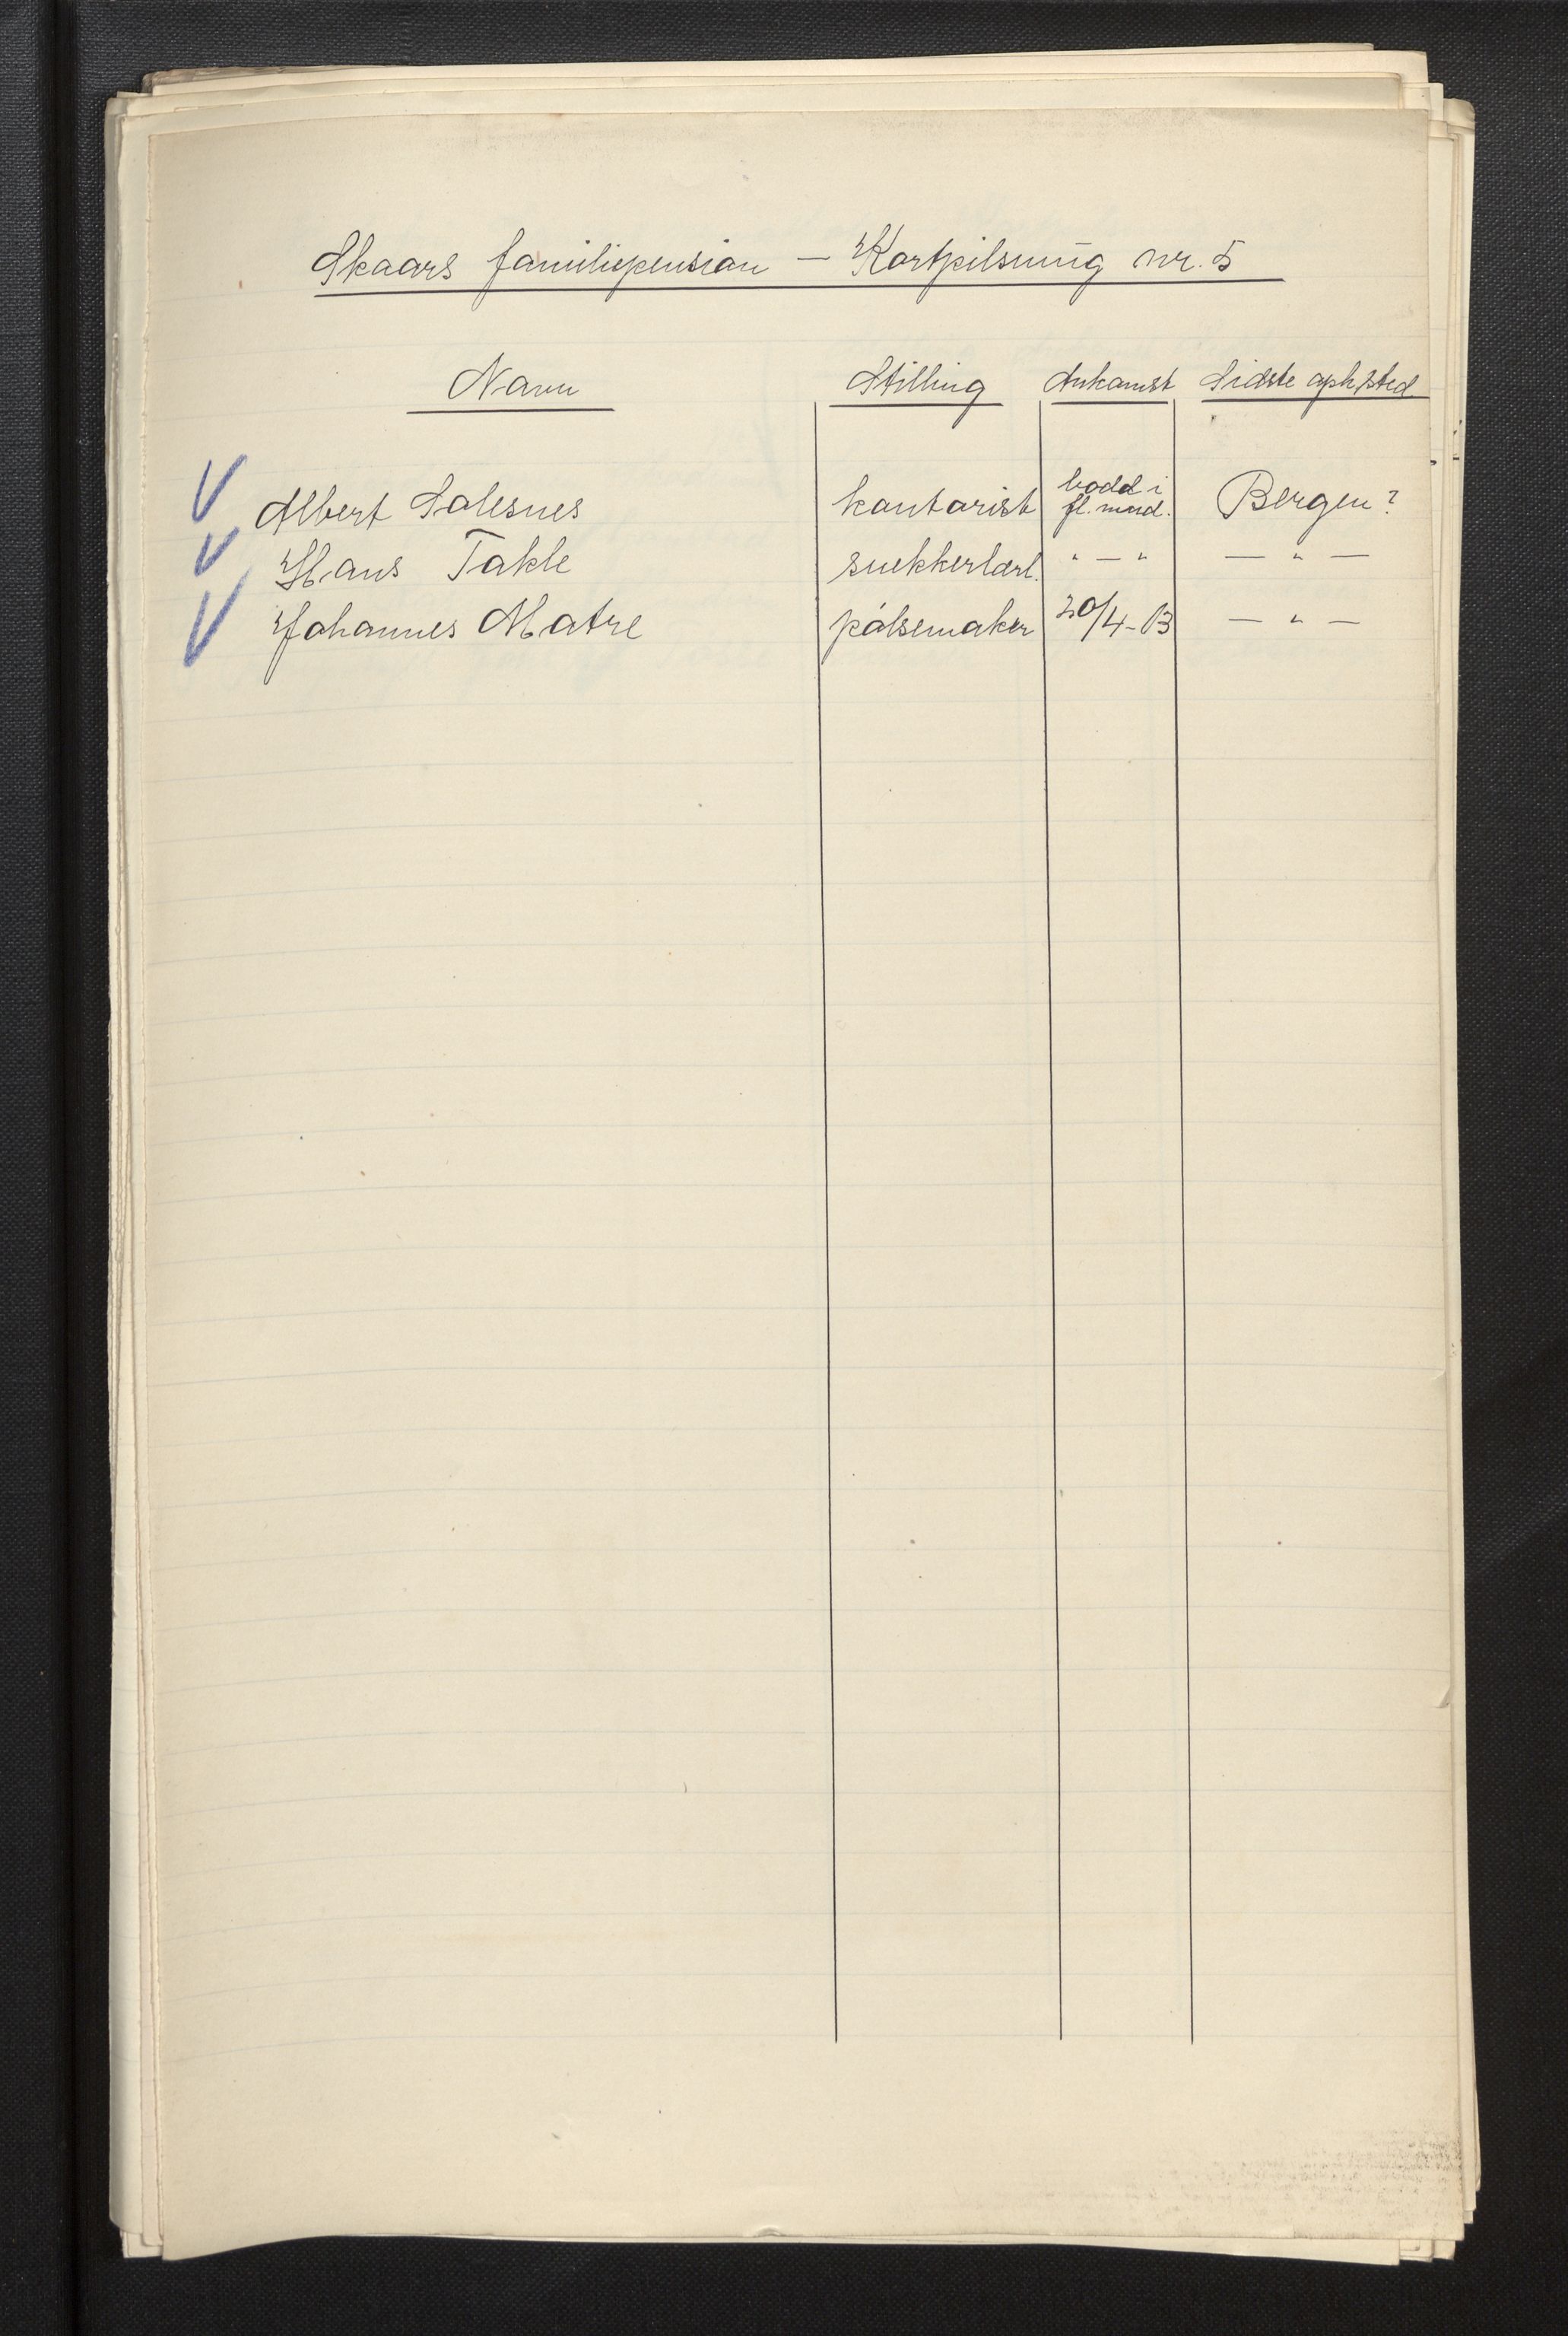 Skaars familiepension — Kortpilsmug nr. 5
Navn Stilling Ankomst Sidste oph.sted
Albert Salesnes kontorist bodd i fl. mnd. Bergen?
Hans Takle snekkerlærl. " — " — " —
Johannes Matre pølsemaker 20/4-13 — " —